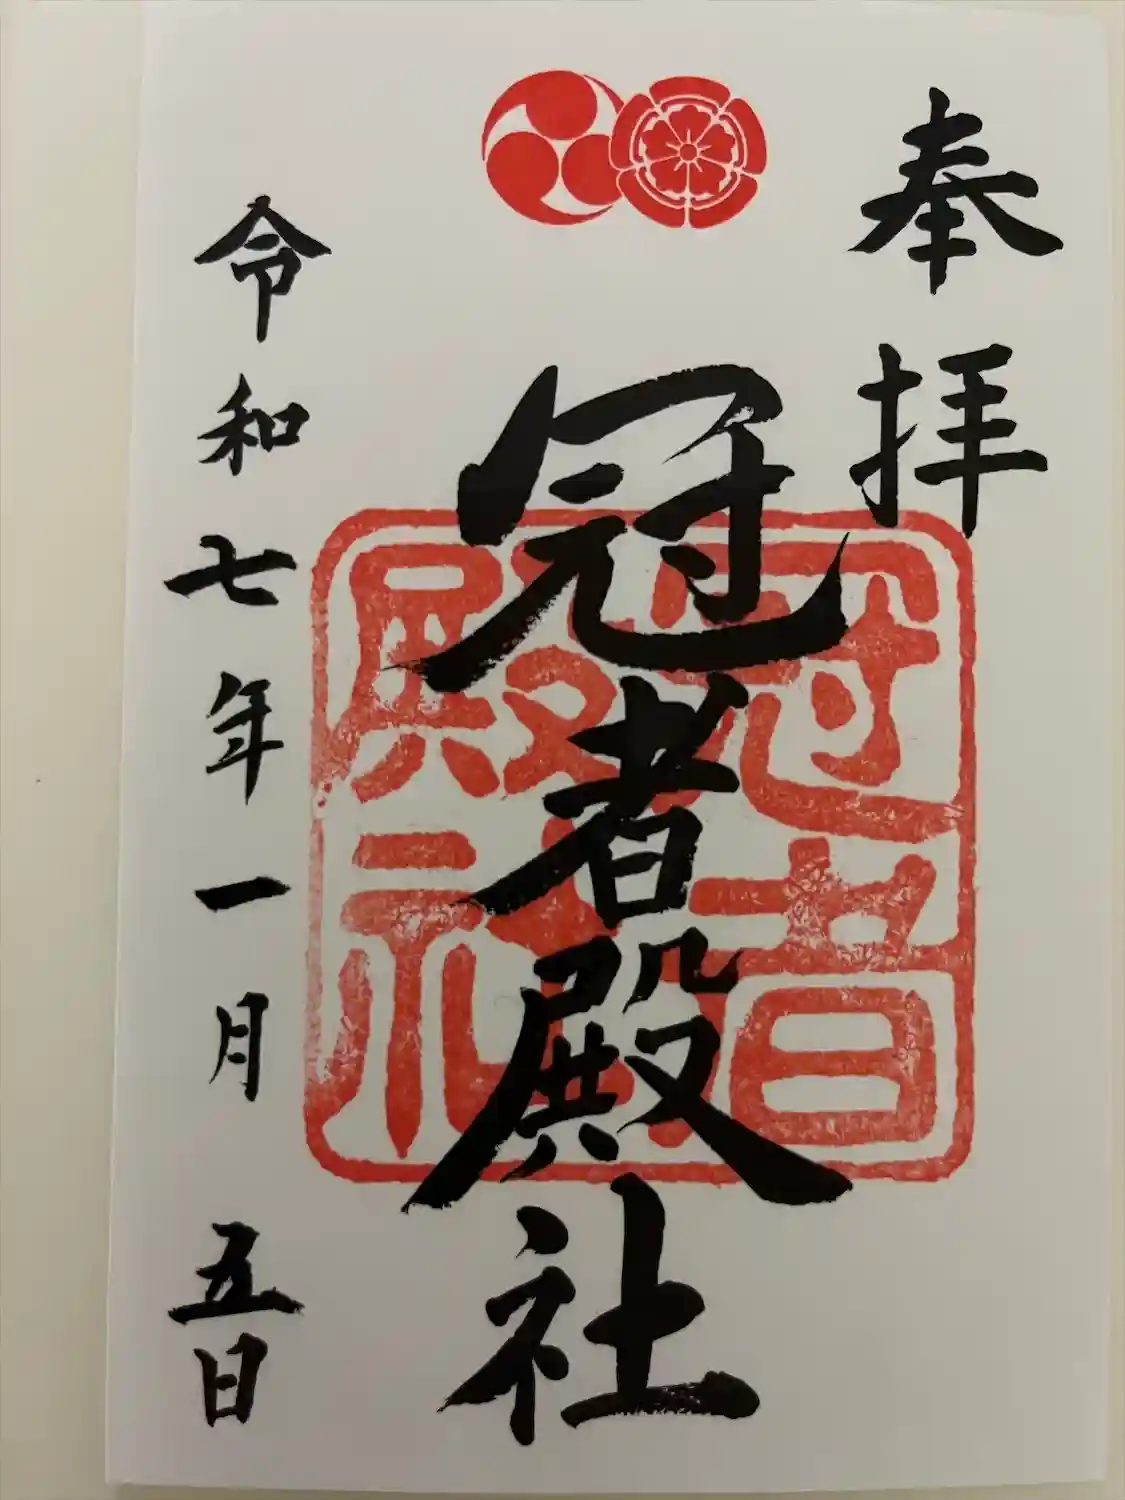 奉拝
冠者殿社
冠者殿社
令和七年一月五日